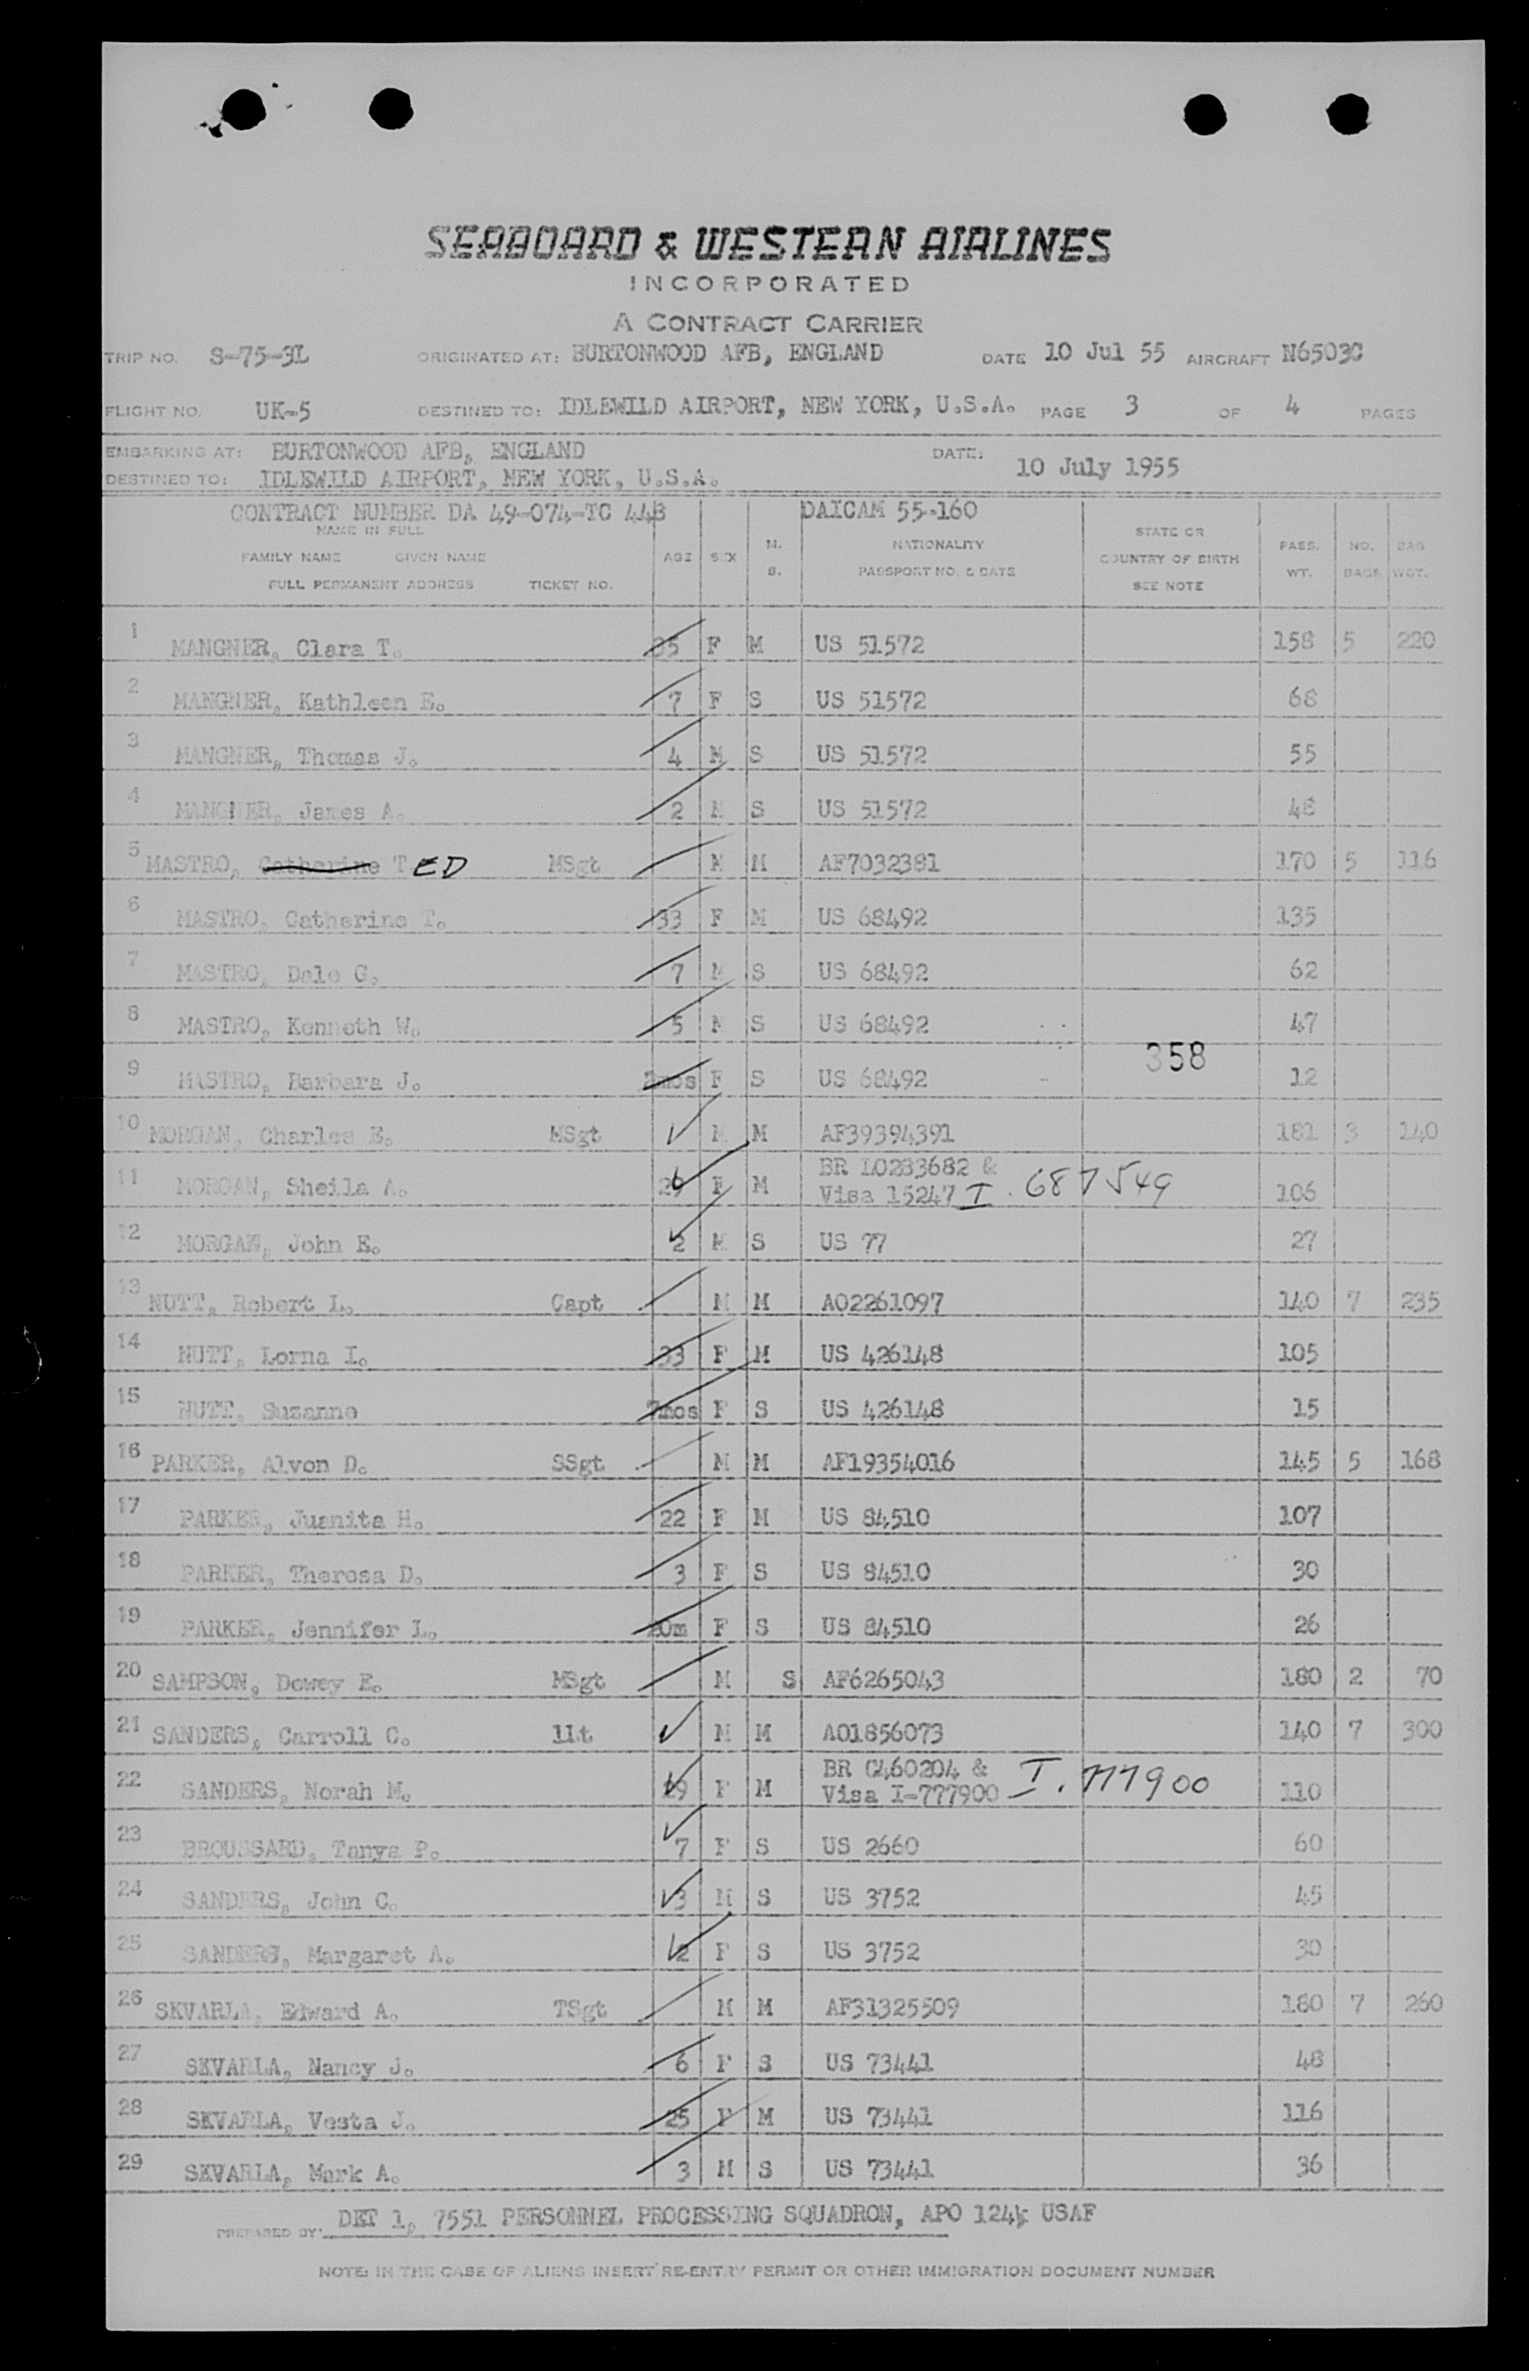 SEABOARD & WESTERN AIRLINES
INCORPORATED
A CONTRACT CARRIER
TRIP NO. S-75-3L ORIGINATED AT: BURTONWOOD AFB, ENGLAND DATE 10 Jul 55 AIRCRAFT N6503C
FLIGHT NO. UK-5 DESTINED TO: IDLEWILD AIRPORT, NEW YORK, U.S.A. PAGE 3 OF 4 PAGES
EMBARKING AT: BURTONWOOD AFB, ENGLAND DATE: 10 July 1955
DESTINED TO: IDLEWILD AIRPORT, NEW YORK, U.S.A.
CONTRACT NUMBER DA 49-074-TC 448 DAICAM 55-160
NAME IN FULL
FAMILY NAME GIVEN NAME
FULL PERMANENT ADDRESS TICKET NO.
AGE SEX M. S.
NATIONALITY
PASSPORT NO. & DATE
STATE OR
COUNTRY OF BIRTH
SEE NOTE
PASS. WT. NO. BAGS BAG WGT.
1 MANGNER, Clara T. 35 F M US 51572 158 5 220
2 MANGNER, Kathleen E. 7 F S US 51572 68
3 MANGNER, Thomas J. 4 M S US 51572 55
4 MANGNER, James A. 2 M S US 51572 48
5 MASTRO, Catherine TED MSgt M M AF7032381 170 5 116
6 MASTRO, Catherine T. 33 F M US 68492 135
7 MASTRO, Dale G. 7 M S US 68492 62
8 MASTRO, Kenneth W. 5 M S US 68492 47
358
9 MASTRO, Barbara J. F S US 68492 12
10 MORGAN, Charles E. MSgt M M AF39394391 181 3 140
11 MORGAN, Sheila A. 29 F M BR L0233682 & Visa 15247 I. 687549 106
12 MORGAN, John E. 2 M S US 77 27
13 NUTT, Robert L. Capt M M AO2261097 140 7 235
14 NUTT, Lorna I. 33 F M US 426148 105
15 NUTT, Suzanne 7mos F S US 426148 15
16 PARKER, Alvon D. SSgt M M AF19354016 145 5 168
17 PARKER, Juanita H. 22 F M US 84510 107
18 PARKER, Theresa D. 3 F S US 84510 30
19 PARKER, Jennifer L. F S US 84510 26
20 SAMPSON, Dewey E. MSgt M S AF6265043 180 2 70
21 SANDERS, Carroll C. 1Lt M M AO1856073 140 7 300
22 SANDERS, Norah M. 29 F M BR C460204 & Visa I-777900 I. 777900 110
23 BROUSSARD, Tanya P. 7 F S US 2660 60
24 SANDERS, John C. 3 M S US 3752 45
25 SANDERS, Margaret A. 2 F S US 3752 30
26 SKVARLA, Edward A. TSgt M M AF31325509 180 7 260
27 SKVARLA, Nancy J. 6 F S US 73441 48
28 SKVARLA, Vesta J. 25 F M US 73441 116
29 SKVARLA, Mark A. 3 M S US 73441 36
PREPARED BY: DET 1, 7551 PERSONNEL PROCESSING SQUADRON, APO 124, USAF
NOTE: IN THE CASE OF ALIENS INSERT RE-ENTRY PERMIT OR OTHER IMMIGRATION DOCUMENT NUMBER